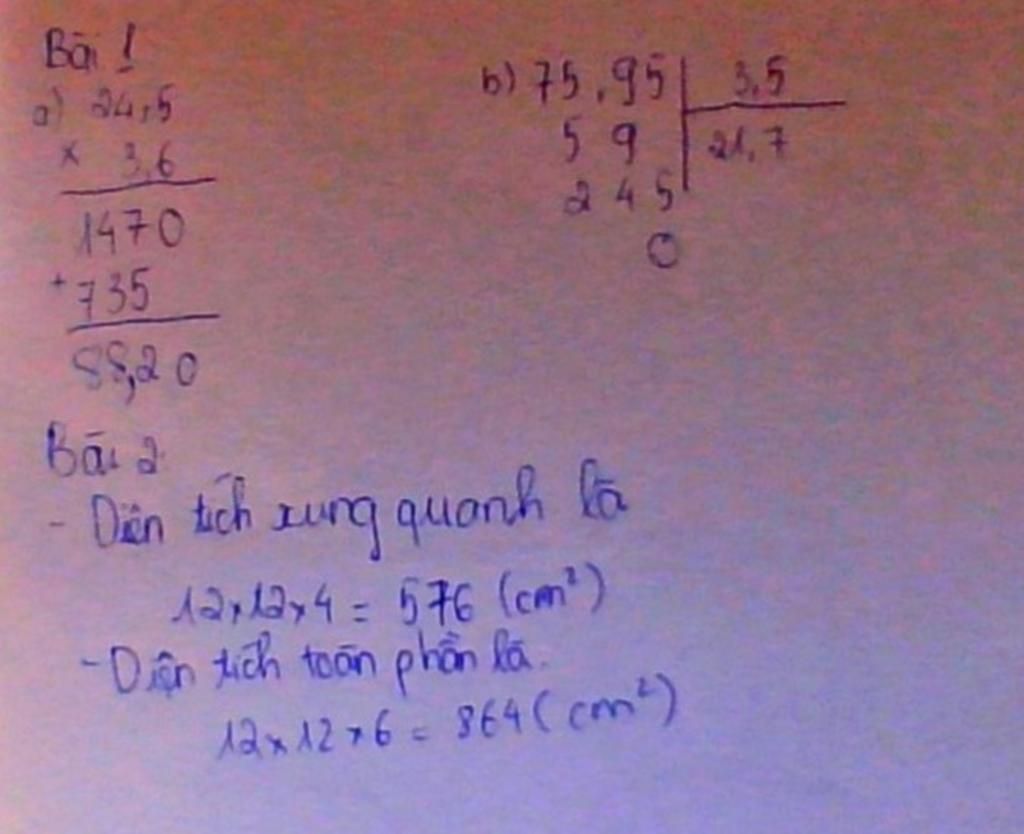 Bài 1
a) 24,5
x 3,6
1470
+ 735
88,20
b) 75,95 3,5
5 9 21,7
2 4 5
0
Bài 2
- Diện tích xung quanh là
12 x 12 x 4 = 576 (cm²)
- Diện tích toàn phần là.
12 x 12 x 6 = 864 (cm²)